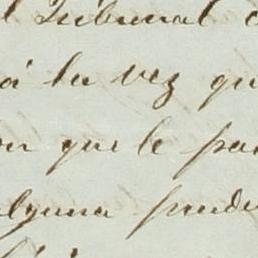 l Tribunal
á la vez qu
on que le pa
lguna prude